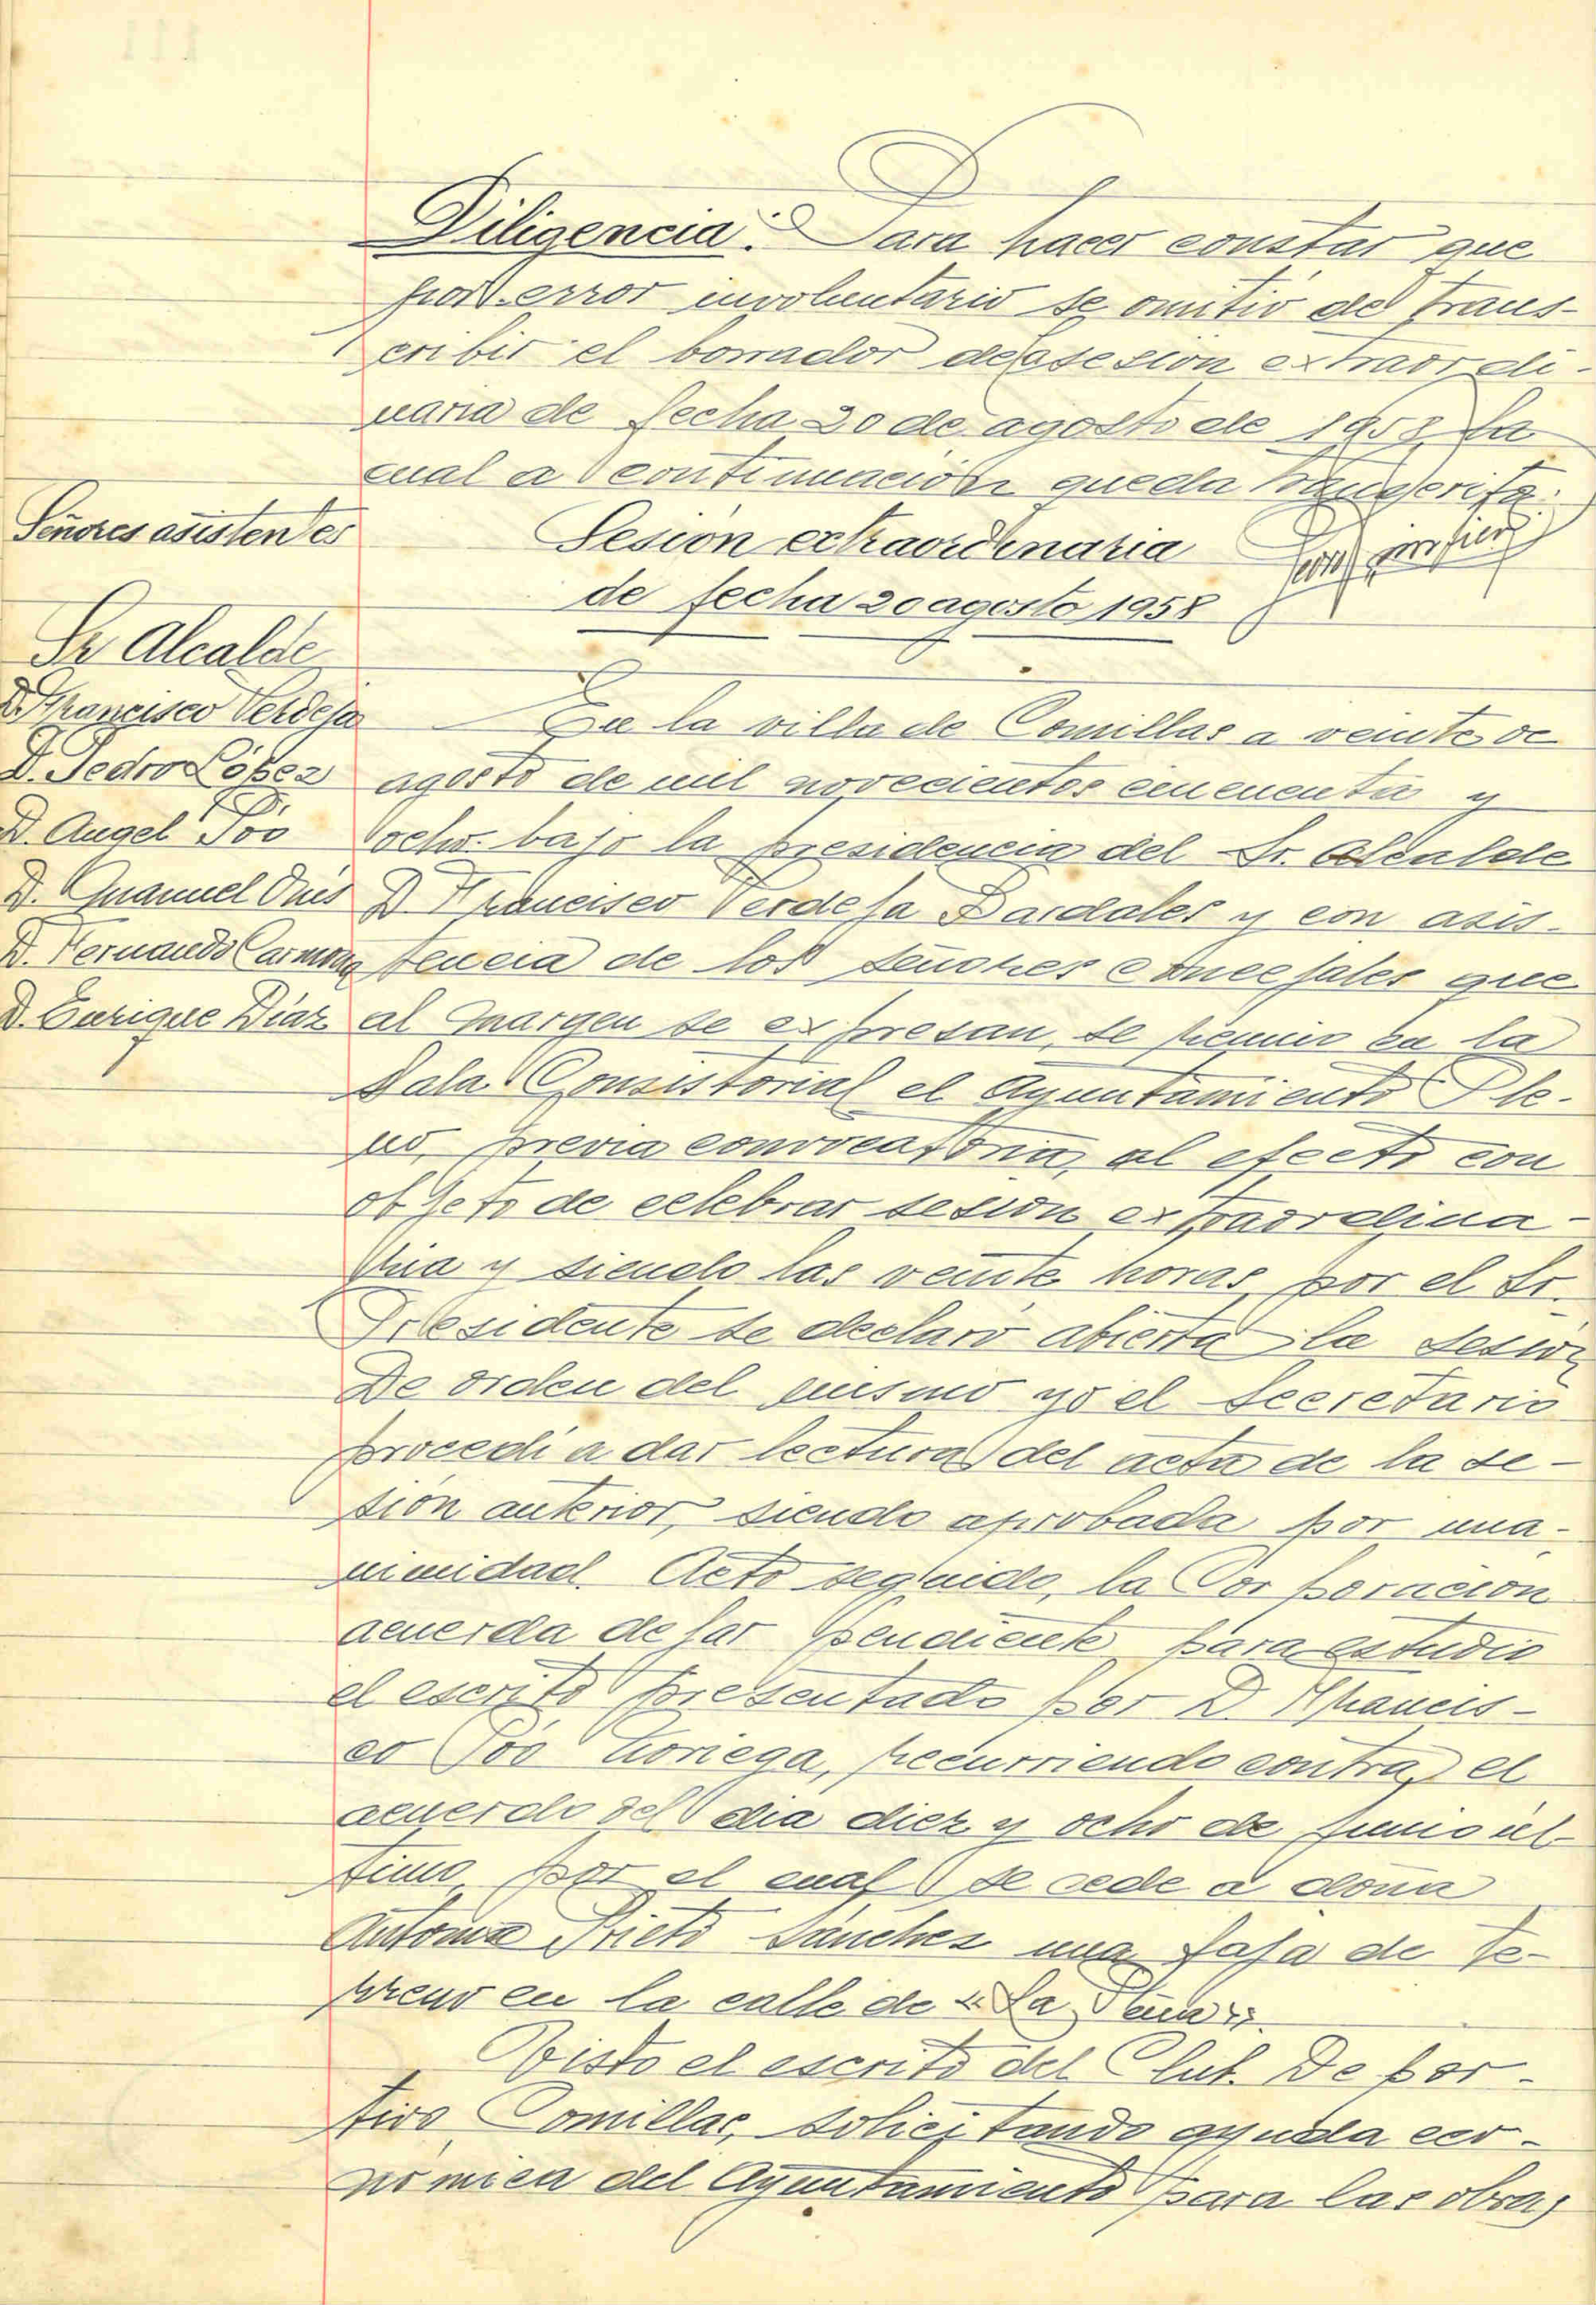 Diligencia: Para hacer constar que
por error involuntario se omitió de trans-
cribir el borrador de la sesion extraordi-
naria de fecha 20 de agosto de 1958, la
cual a continuación queda transcrita.
Señores asistentes
Sesión extraordinaria
de fecha 20 agosto 1958
Sr Alcalde
D. Francisco Verdeja
D. Pedro López
D. Angel Póo
D. Manuel Onis
D. Fernando Carmona
D. Enrique Díaz
En la villa de Comillas a veinte de
agosto de mil novecientos cincuenta y
ocho bajo la presidencia del Sr. Alcalde
D. Francisco Verdeja Bardales y con asis-
tencia de los señores concejales que
al margen se expresan, se reunió en la
Sala Consistorial el Ayuntamiento Ple-
no, previa convocatoria, al efecto con
objeto de celebrar sesión extraordina-
ria y siendo las veinte horas, por el Sr.
Presidente se declaró abierta la sesión
De orden del mismo yo el Secretario
procedí a dar lectura del acta de la se-
sión anterior, siendo aprobada por una-
nimidad. Acto seguido, la Corporación
acuerda dejar pendiente para estudio
el escrito presentado por D. Francis-
co Póo Noriega, recurriendo contra el
acuerdo del dia diez y ocho de junio úl-
timo, por el cual se cede a doña
Antonia Prieto Sánchez una faja de te-
rreno en la calle de "La Peña".
Visto el escrito del Club Depor-
tivo Comillas, solicitando ayuda eco-
nómica del Ayuntamiento para las obras